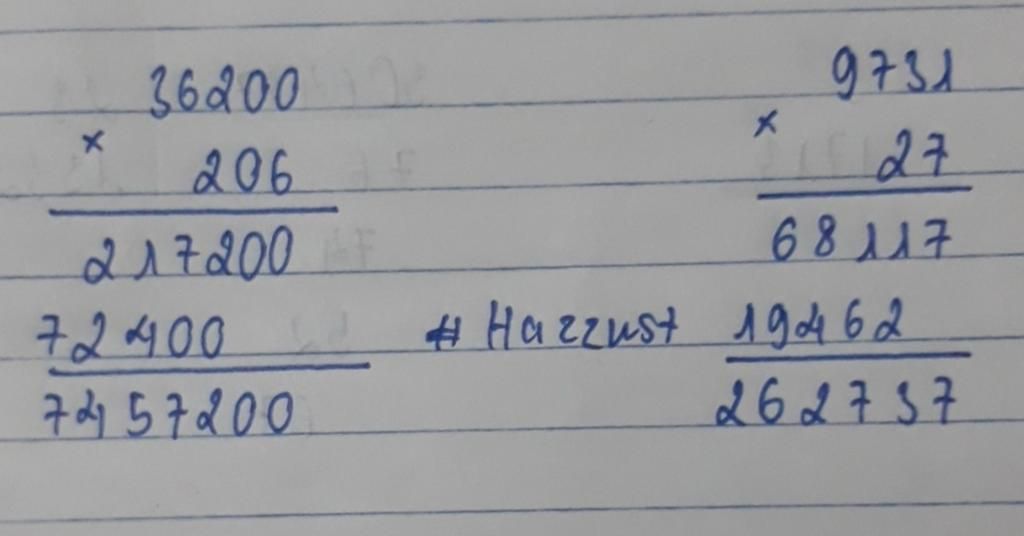 36200
×
206
217200
72400
7457200
# Hazzust
9731
×
27
68117
19462
262737